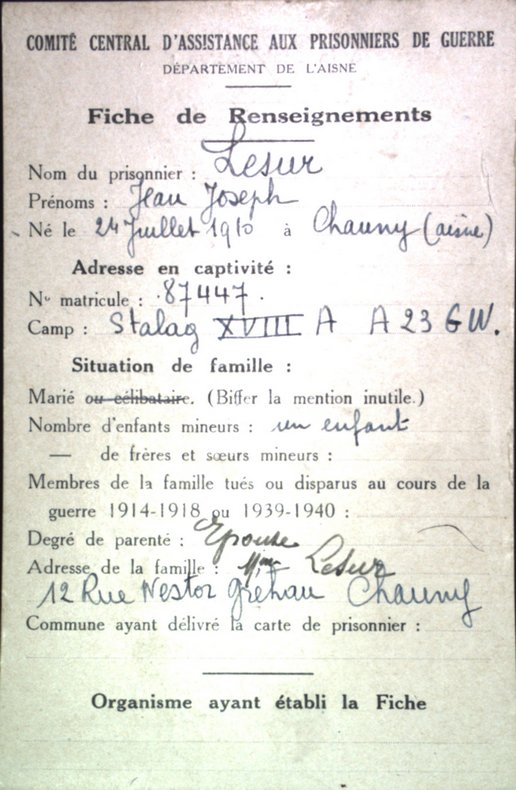 COMITÉ CENTRAL D'ASSISTANCE AUX PRISONNIERS DE GUERRE
DÉPARTEMENT DE L'AISNE
Fiche de Renseignements
Nom du prisonnier : Lesur
Prénoms : Jean Joseph
Né le 24 Juillet 1910 à Chauny (aisne)
Adresse en captivité :
N° matricule : 87447.
Camp : Stalag XVIII A A 23 GW.
Situation de famille :
Marié ou célibataire. (Biffer la mention inutile.)
Nombre d'enfants mineurs : un enfant
— de frères et sœurs mineurs :
Membres de la famille tués ou disparus au cours de la
guerre 1914-1918 ou 1939-1940 :
Degré de parenté : Epouse
Adresse de la famille : Mme Lesur
12 Rue Nestor Gréhau Chauny
Commune ayant délivré la carte de prisonnier :
Organisme ayant établi la Fiche